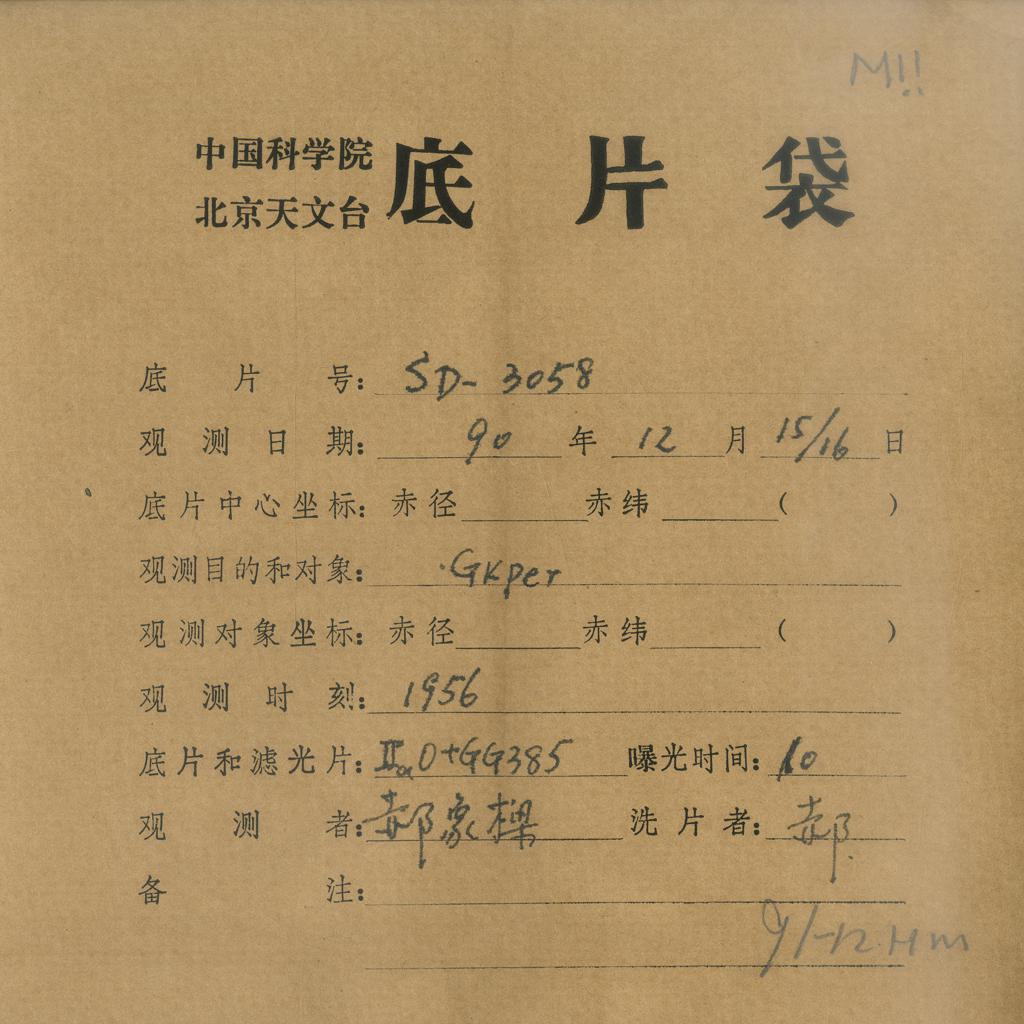 M!!
中国科学院
北京天文台
底片袋
底片号: SD-3058
观测日期: 90年 12月 15/16日
底片中心坐标: 赤径 赤纬 ( )
观测目的和对象: GKper
观测对象坐标: 赤径 赤纬 ( )
观测时刻: 1956
底片和滤光片: IIaO+GG385 曝光时间: 10
观测者: 郝象樑 洗片者: 郝
备注: